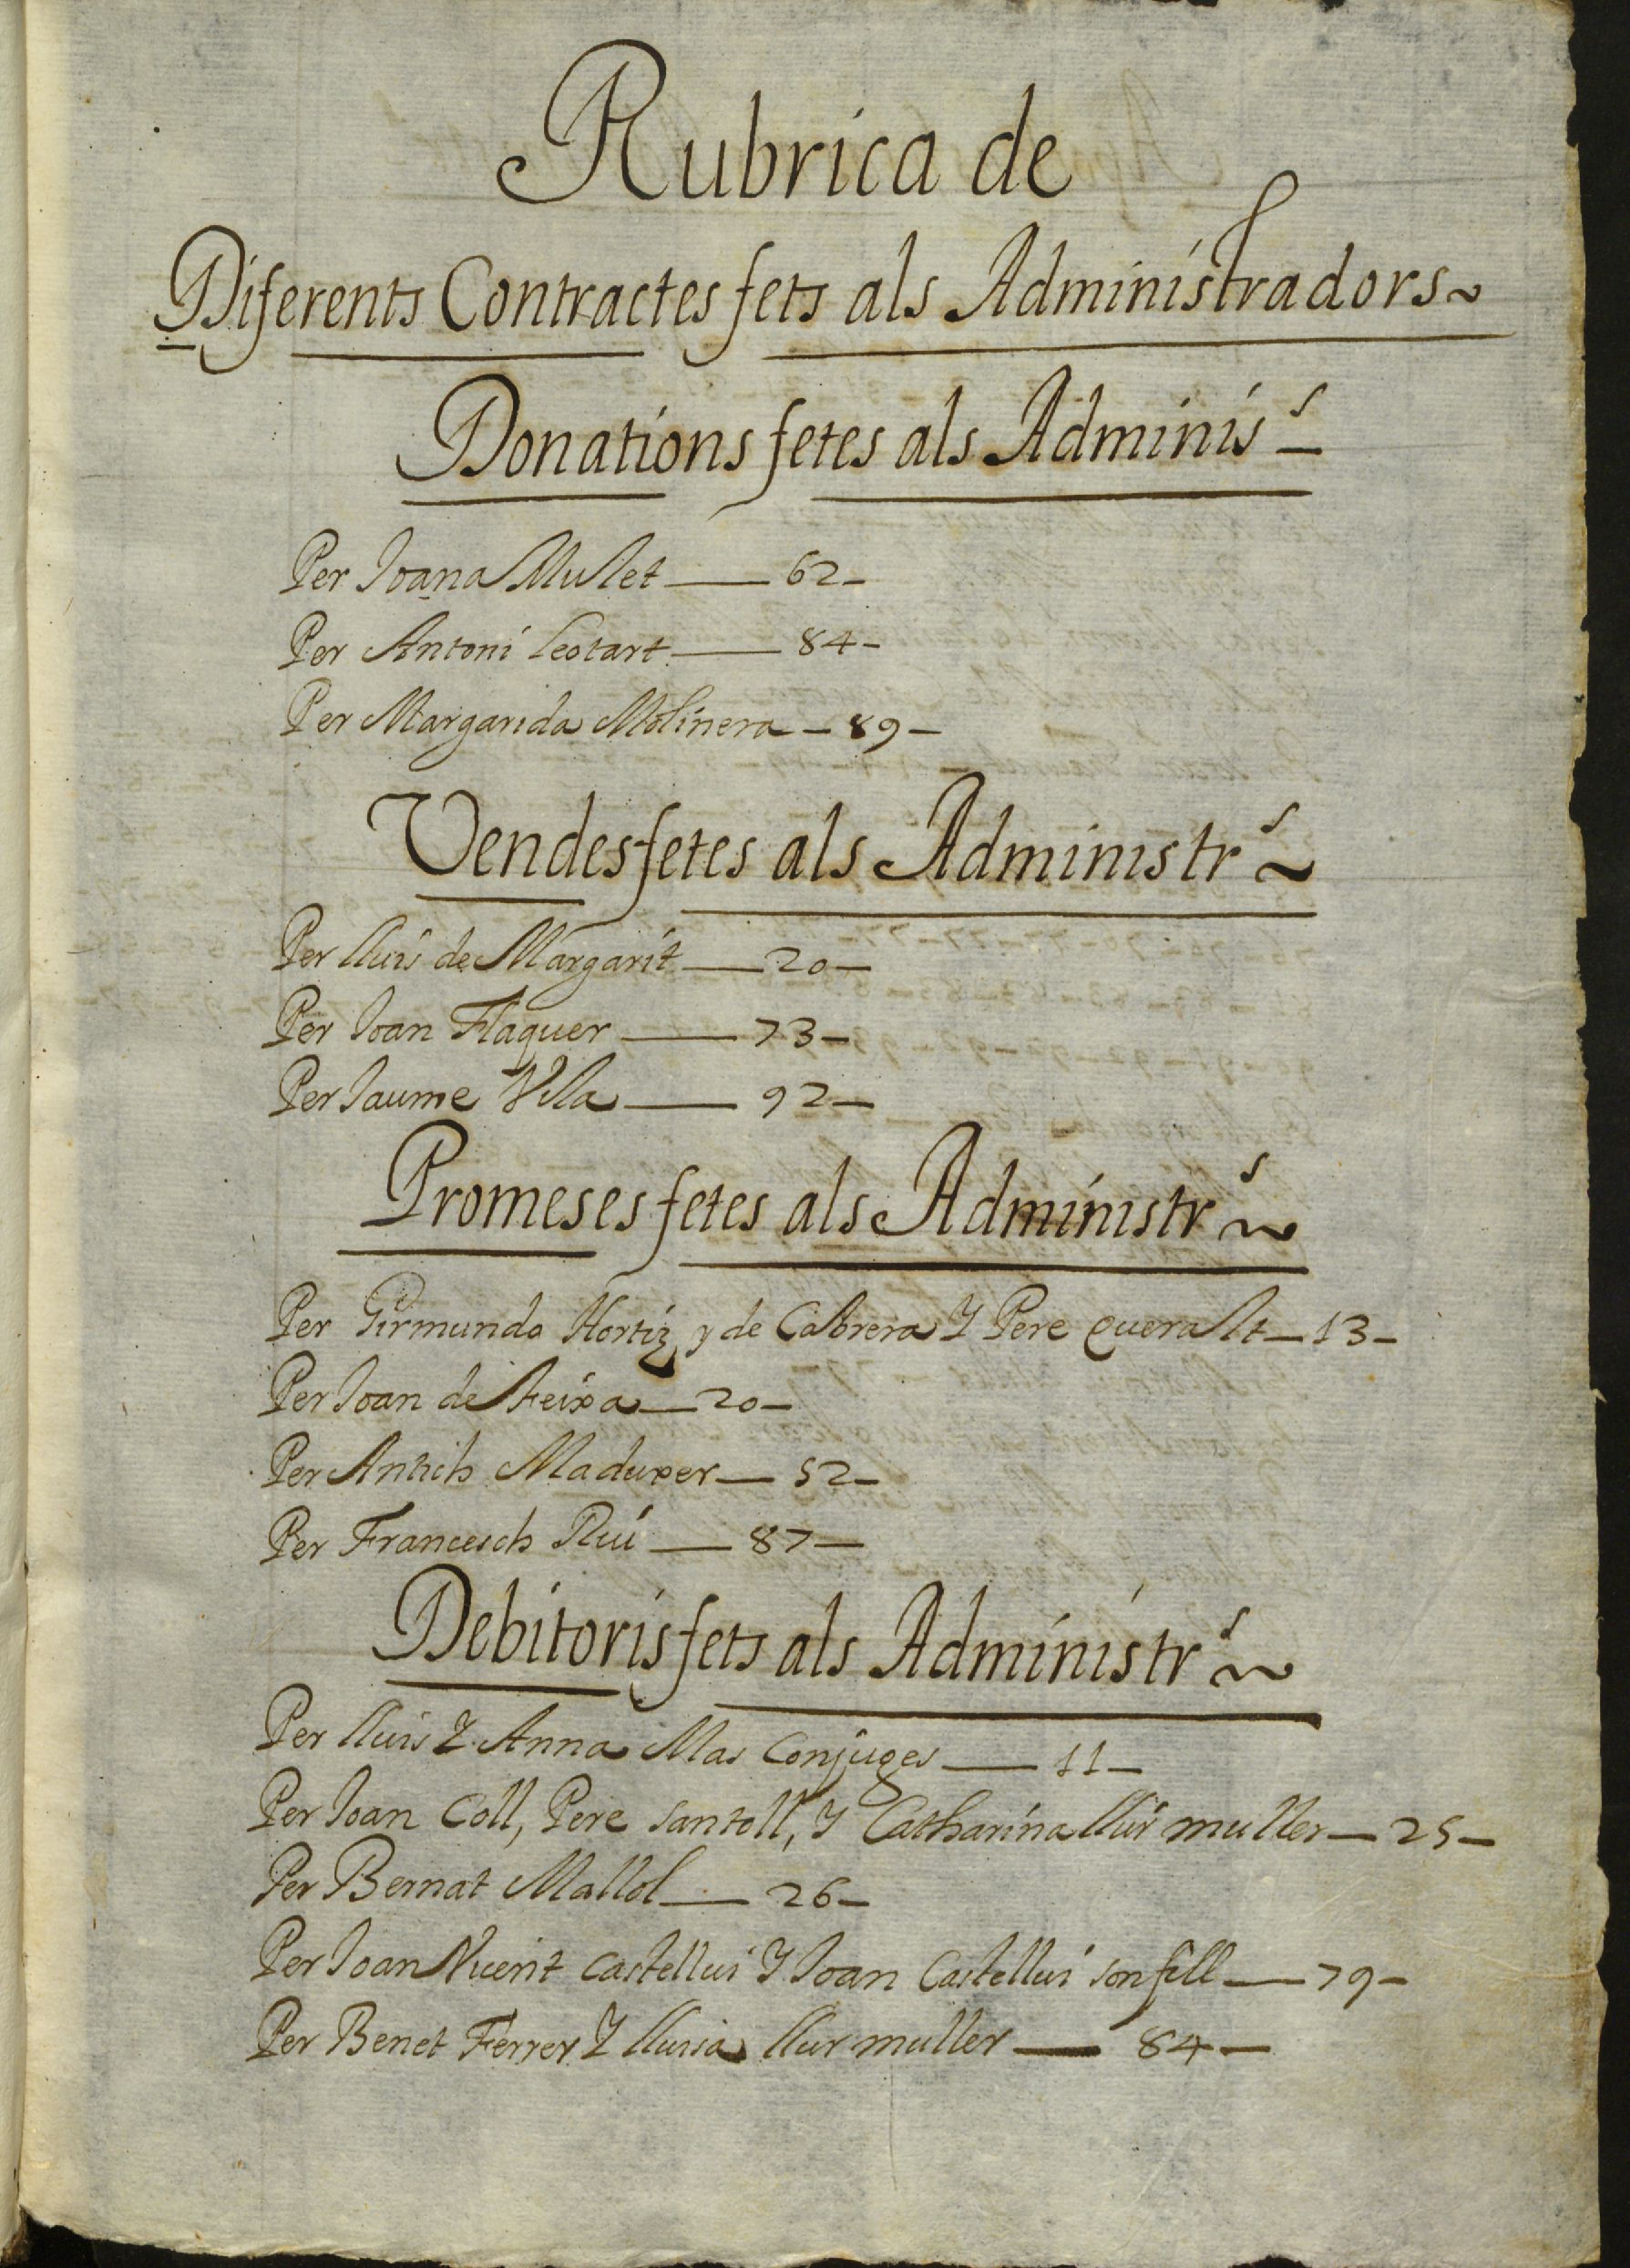 Rubrica de
Diferents Contractes fets als Administradors~
Donations fetes als Adminisˢ—
Per Joana Mulet — 62 —
Per Antoni Leotart — 84 —
Per Margarida Molinera — 89 —
Vendes fetes als Administrˢ~
Per lluis de Margarit — 20 —
Per Joan Flaquer — 73 —
Per Jaume Vila — 92 —
Promeses fetes als Administrˢ~
Per Girmundo Hortiz y de Cabrera Y Pere Queralt — 13 —
Per Joan de — 20 —
Per Antich Maduxer — 52 —
Per Francesch Riu — 87 —
Debitoris fets als Administrˢ~
Per lluis Y Anna Mas Conjuges — 11 —
Per Joan Coll, Pere Santoll, Y Catharina llur muller — 25 —
Per Bernat Mallol — 26 —
Per Joan Vicent Castellui Y Joan Castellui son fill — 79 —
Per Benet Ferrer Y llusia llur muller — 84 —